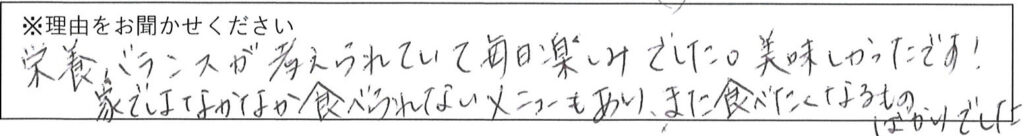 ※理由をお聞かせください
栄養バランスが考えられていて毎日楽しみでした。美味しかったです!
家ではなかなか食べられないメニューもあり、また食べたくなるもの
ばかりでした